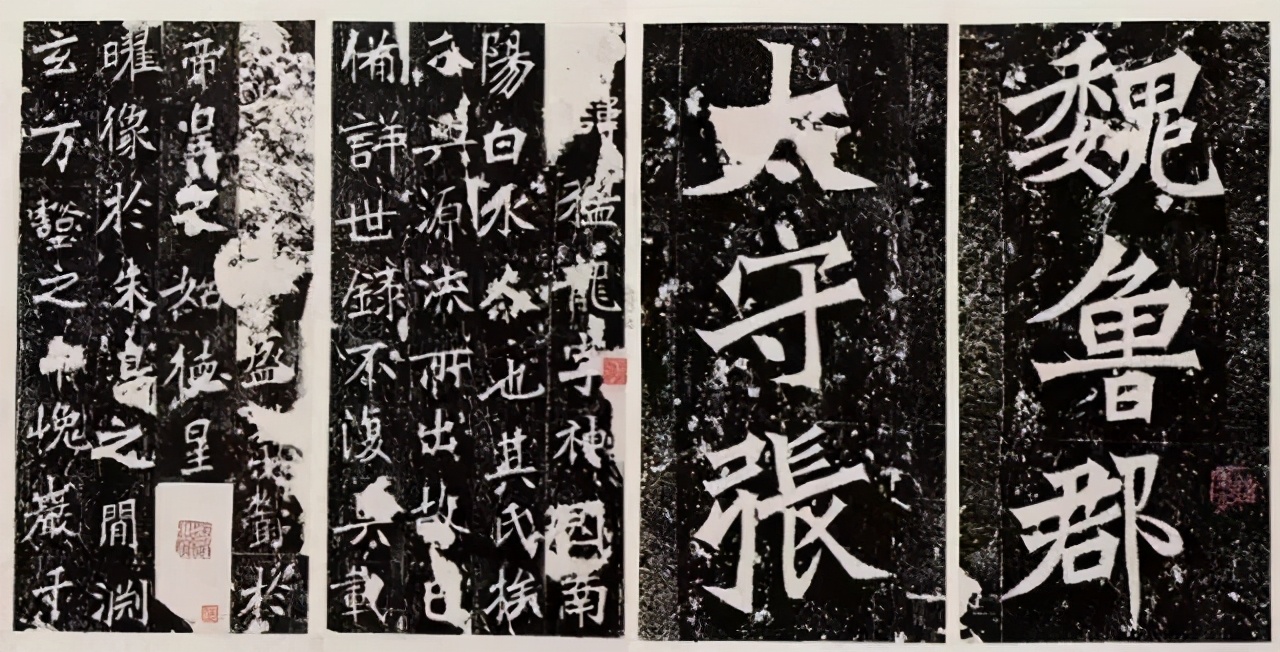 魏魯郡
太守張
諱猛龍字神囧南
陽白水人也其氏族
分興源流所出故已
備詳世錄不復具載
盈於
帝皇之始德星
曜像於朱鳥之間淵
玄万壑之中巖千